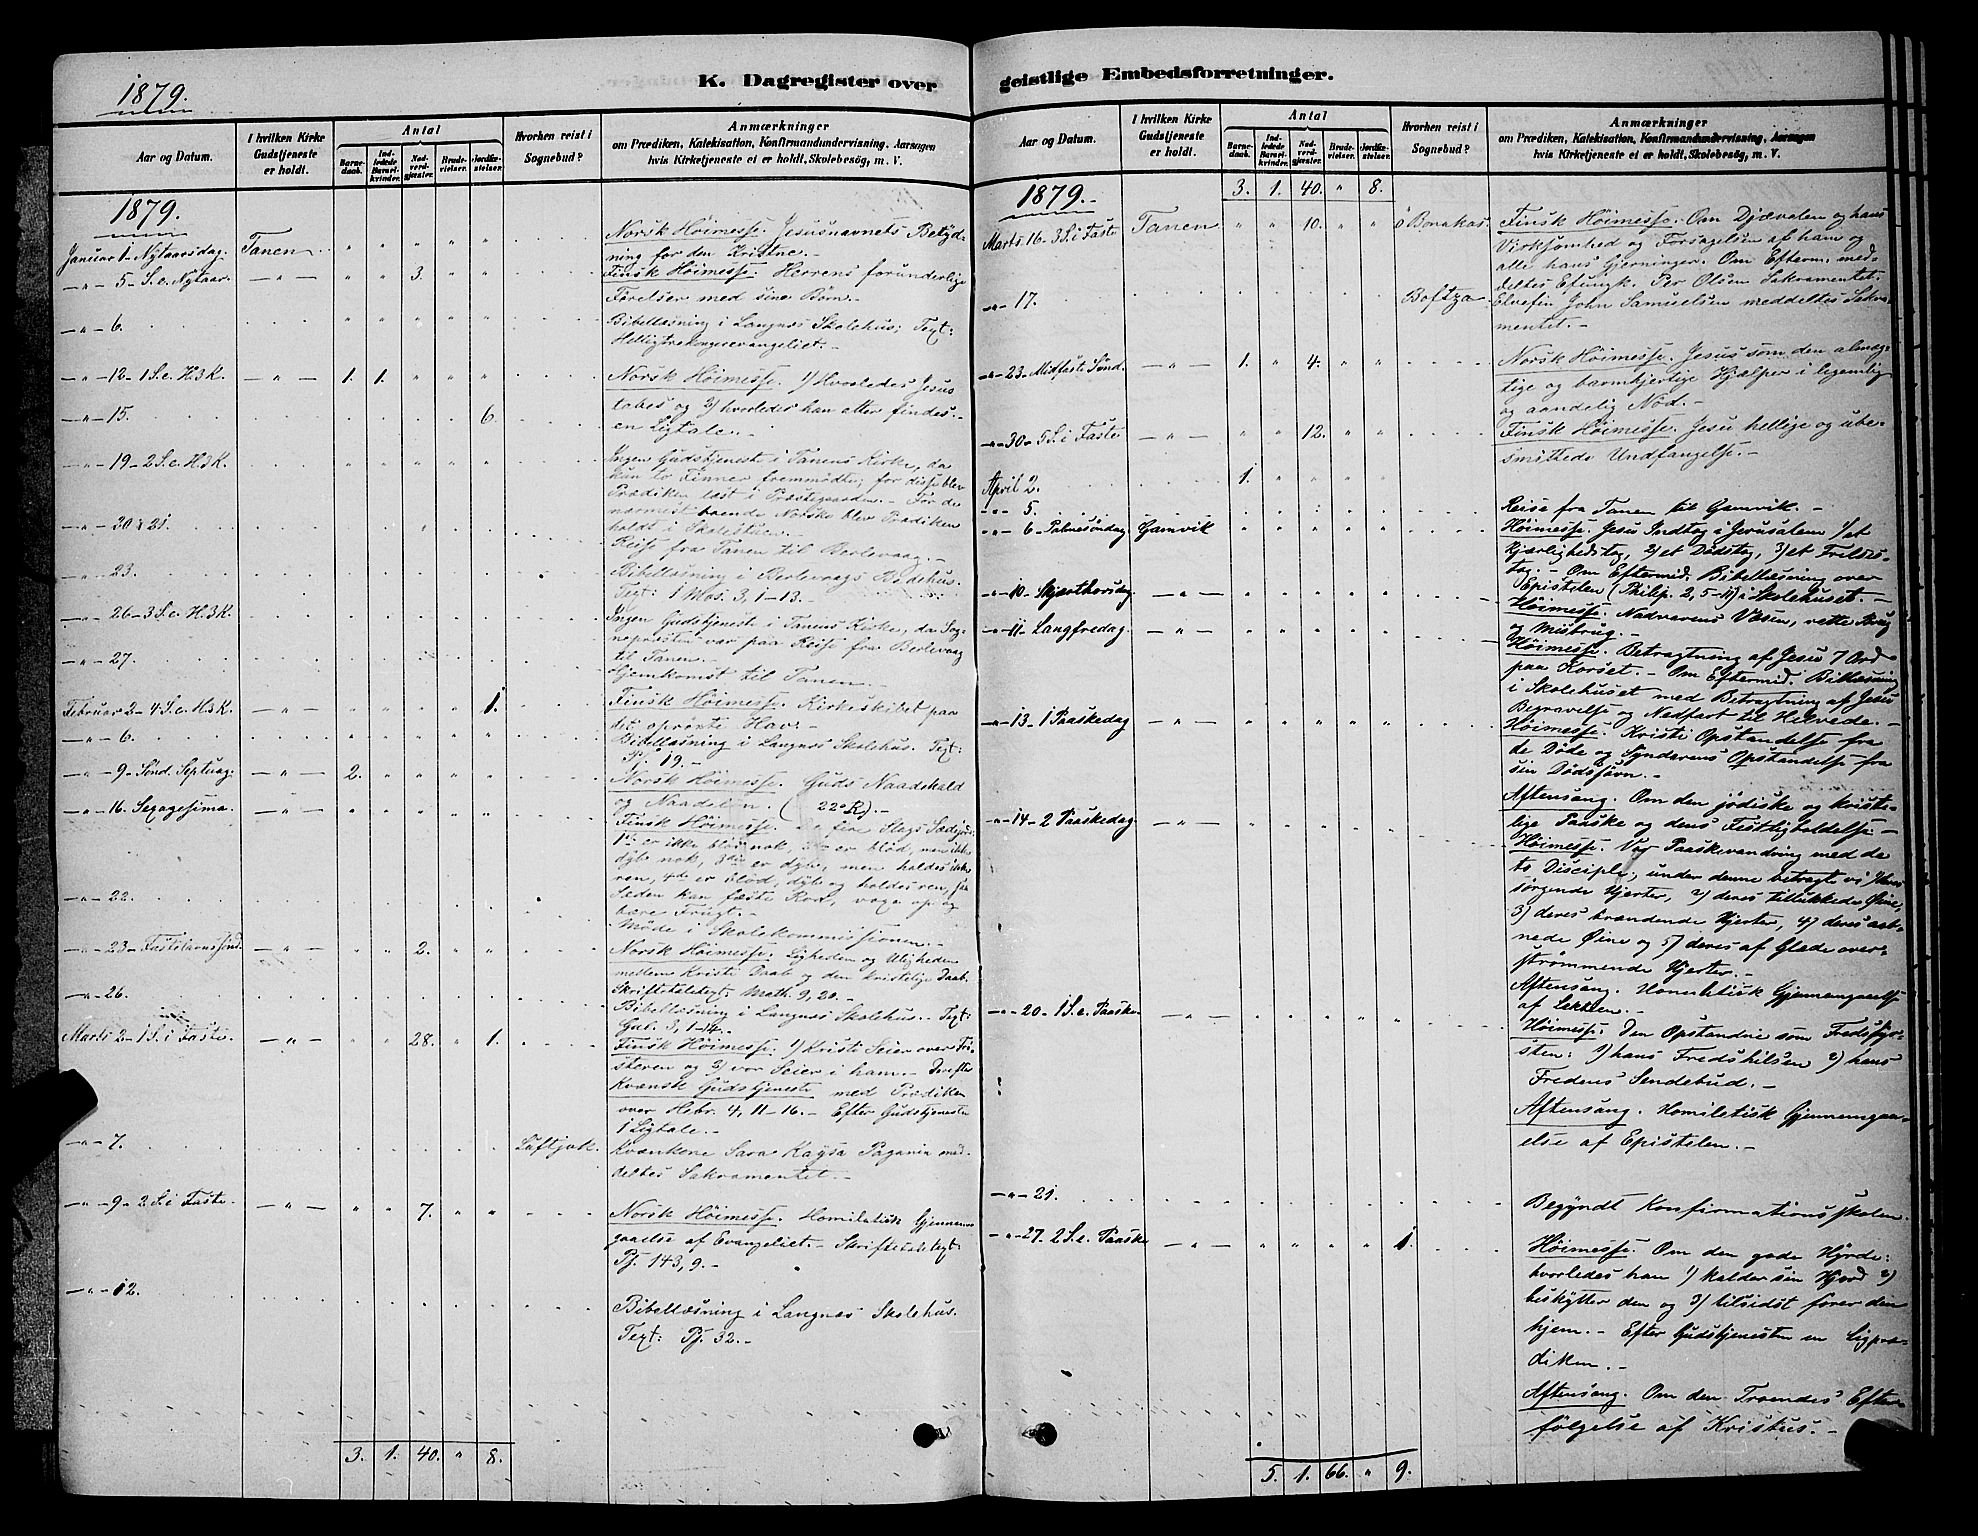 K. Dagregister over
1879.
Aar og Datum.
I hvilken Kirke Gudstjeneste er holdt.
Antal
Barnedaab.
Indledede Barselkvinder.
Nadverdgjæster.
Brudevielser.
Jordfæstelser.
Hvorhen reist i Sognebud?
Anmærkninger
om Prædiken, Katekisation, Konfirmandundervisning, Aarsagen
hvis Kirketjeneste ei er holdt, Skolebesøg, m. V.
1879.
Januar 1 - Nytaarsdag. Tanen " " " " " Norsk Höimesse. Jesusnavnets Betyd-
ning for den Kristne.-
-"- 5 - S. e. Nytaar. -"- " " 3. " " Finsk Höimesse. Herrens forunderlige
Förelser med sine Børn.-
-"- 6. " " " " " Bibellæsning i Langnæs Skolehus; Text:
Helligtrekongersevangeliet.-
-"- 12 - 1 S. e. H.3K. -"- 1. 1. " " " Norsk Höimesse. 1) Hvorledes Jesus
tabes og 2) hvorledes han atter findes.-
-"- 15. 6. en Ligtale.-
-"- 19 - 2 S. e. H3K. " " " " " Ingen Gudstjeneste i Tanens Kirke, da
kun to Finner fremmødte; for disse blev
Prædiken læst i Præstegaarden.- For de
nærmest boende Norske blev Prædiken
holdt i Skolestuen.-
-"- 20 & 21. Reise fra Tanen til Berlevaag.-
-"- 23. Bibellæsning i Berlevaags Bedehus.
Text: 1 Mos. 3, 1-13.-
-"- 26 - 3 S. e. H3K. Ingen Gudstjeneste i Tanens Kirke, da Sog-
nepræsten var paa Reise fra Berlevaag
til Tanen.-
-"- 27. Hjemkomst til Tanen.-
Februar 2 - 4 S. e. H3K. -"- " " " " 1. Finsk Höimesse. Kirkeskibet paa
det oprørte Hav.-
-"- 6. " " " " " Bibellæsning i Langnæs Skolehus. Text:
Pj. 19.-
-"- 9 - Sönd. Septuag. -"- 2. " " " " Norsk Höimesse. Guds Naadekald
og Naadelön. (22° R).-
-"- 16. Sexagesima. -"- " " " " " Finsk Höimesse. De fire Slags Sædejord:
1ste er ikke blöd nok, 2den er blöd, men ikke
dyb nok, 3die er dyb, men holdes ikke
ren, 4de er blöd, dyb og holdes ren, saa
Sæden kan fæste Rod, voxe op og
bære Frugt.-
-"- 22. Møde i Skolekommissionen.-
-"- 23 - Fastelavnssönd. -"- " " 2. " " Norsk Höimesse. Ligheden og Uligheden
mellem Kristi Daab og den kristelige Daab.
Skriftetaletext: Math. 9, 20.-
-"- 26. Bibellæsning i Langnæs Skolehus. Text:
Gal. 3, 1-14.-
Marts 2 - 1 S. i Faste. -"- " " 28. " 1. Finsk Höimesse. 1) Kristi Seier over Fri-
steren og 2) vor Seier i ham.- Derefter
Kvænsk Gudstjeneste med Prædiken
over Hebr. 4, 11-16.- Efter Gudstjenesten
1 Ligtale.-
-"- 7. Luftjok. Kvænkone Sara Kaysa Paganin med-
deltes Sakramentet.-
-"- 9 - 2 S. i Faste. -"- " " 7. " " Norsk Höimesse. Homiletisk Gjennem-
gaaelse af Evangeliet.- Skriftetaletext:
Pj. 143, 9.-
-"- 12. Bibellæsning i Langnæs Skolehus.
Text: Pj. 32.-
3. 1. 40. " 8.
geistlige Embedsforretninger.
Aar og Datum.
I hvilken Kirke Gudstjeneste er holdt.
Antal
Barnedaab.
Indledede Barselkvinder.
Nadverdgjæster.
Brudevielser.
Jordfæstelser.
Hvorhen reist i Sognebud?
Anmærkninger
om Prædiken, Katekisation, Konfirmandundervisning, Aarsagen
hvis Kirketjeneste ei er holdt, Skolebesøg, m. V.
1879.- 3. 1. 40. " 8.
Marts 16 - 3 S. i Faste Tanen " " 10. " " Bonakas. Finsk Höimesse. Om Djævelen og hans
Virksomhed og Forsagelsen af ham og
alle hans Gjerninger. Om Efterm. med-
deltes Per Olsen Sakramentet.
-"- 17. Boftza. Elvefin John Samuelsen meddeltes Sakra-
mentet.-
-"- 23 - Midfaste Sönd. -"- 1. " 4. " " Norsk Höimesse. Jesus som den almæg-
tige og barmhjertige Hjælper i legemlig
og aandelig Nöd.-
-"- 30 - 5 S. i Faste -"- " " 12. " " Finsk Höimesse. Jesu hellige og ube-
smittede Undfangelse.-
April 2. 1. " " "
-"- 5. Reise fra Tanen til Gamvik.-
-"- 6 - Palmesöndag. Gamvik " " " " " Höimesse. Jesu Indtog i Jerusalem 1) et
Kjærlighedstog, 2) et Dødstog, 3) et Frelses-
tog.- Om Eftermid. Bibellæsning over
Epistelen (Philip. 2, 5-11) i Skolehuset.-
-"- 10 - Skjærthorsdag. -"- " " " " " Höimesse. Nadverens Væsen, rette Brug
og Misbrug.-
-"- 11 - Langfredag. -"- " " " " " Höimesse. Betragtning af Jesu 7 Ord
paa Korset.- Om Eftermid. Bibellæsning
i Skolehuset med Betragtning af Jesu
Begravelse og Nedfart til Helvede.-
-"- 13 - 1 Paaskedag -"- " " " " " Höimesse. Kristi Opstandelse fra
de Døde og Synderens Opstandelse fra
sin Dødssövn.-
Aftensang. Om den jödiske og kriste-
lige Paaske og dens Festligholdelse.-
-"- 14 - 2 Paaskedag. -"- " " " " " Höimesse. Vor Paaskevandring med de
to Disciple, under denne betragte vi 1) deres
sörgende Hjerter, 2) deres tillukkede Øine,
3) deres brændende Hjerter, 4) deres aab-
nede Øine og 5) deres af Glæde over-
strømmende Hjerter.-
Aftensang. Homiletisk Gjennemgaaelse
af Lektien.-
-"- 20 - 1 S. e. Paaske -"- " " " " " Höimesse. Den Opstandne som Fredsfyr-
sten: 1) hans Fredshilsen 2) hans
Freden's Sendebud.-
Aftensang. Homiletisk Gjennemgaa-
else af Epistelen.-
-"- 21. Begyndt Konfirmationsskolen.
-"- 27. 2 S. e. Paaske -"- " " " " 1. Höimesse. Om den gode Hyrde:
hvorledes han 1) kalder sin Hjord 2)
beskytter den og 3) tilsidst förer den
hjem.- Efter Gudstjenesten en Ligpræ-
diken.-
Aftensang. Om den Troendes Efter-
fölgelse af Kristus.-
5. 1. 66. " 9.